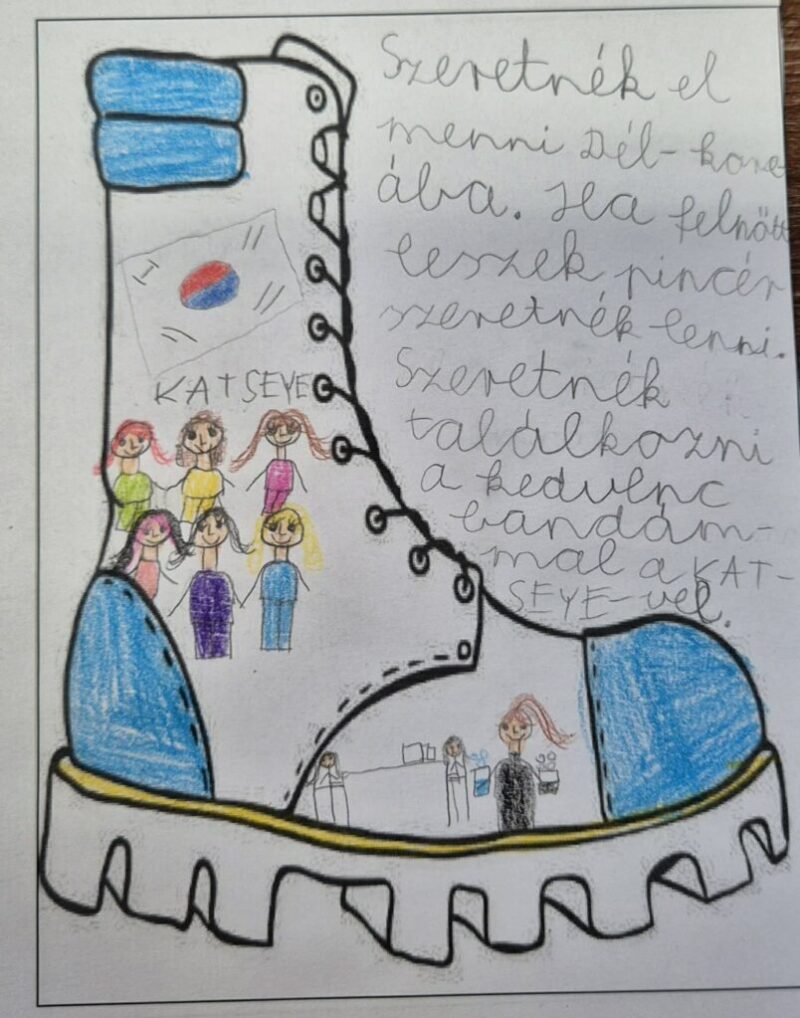 Szeretnék el
menni Dél-kore
ába. Ha felnőtt
leszek pincér
szeretnék lenni.
Szeretnék
találkozni
a kedvenc
bandám-
mal a KAT-
SEYE-vel.
KATSEYE